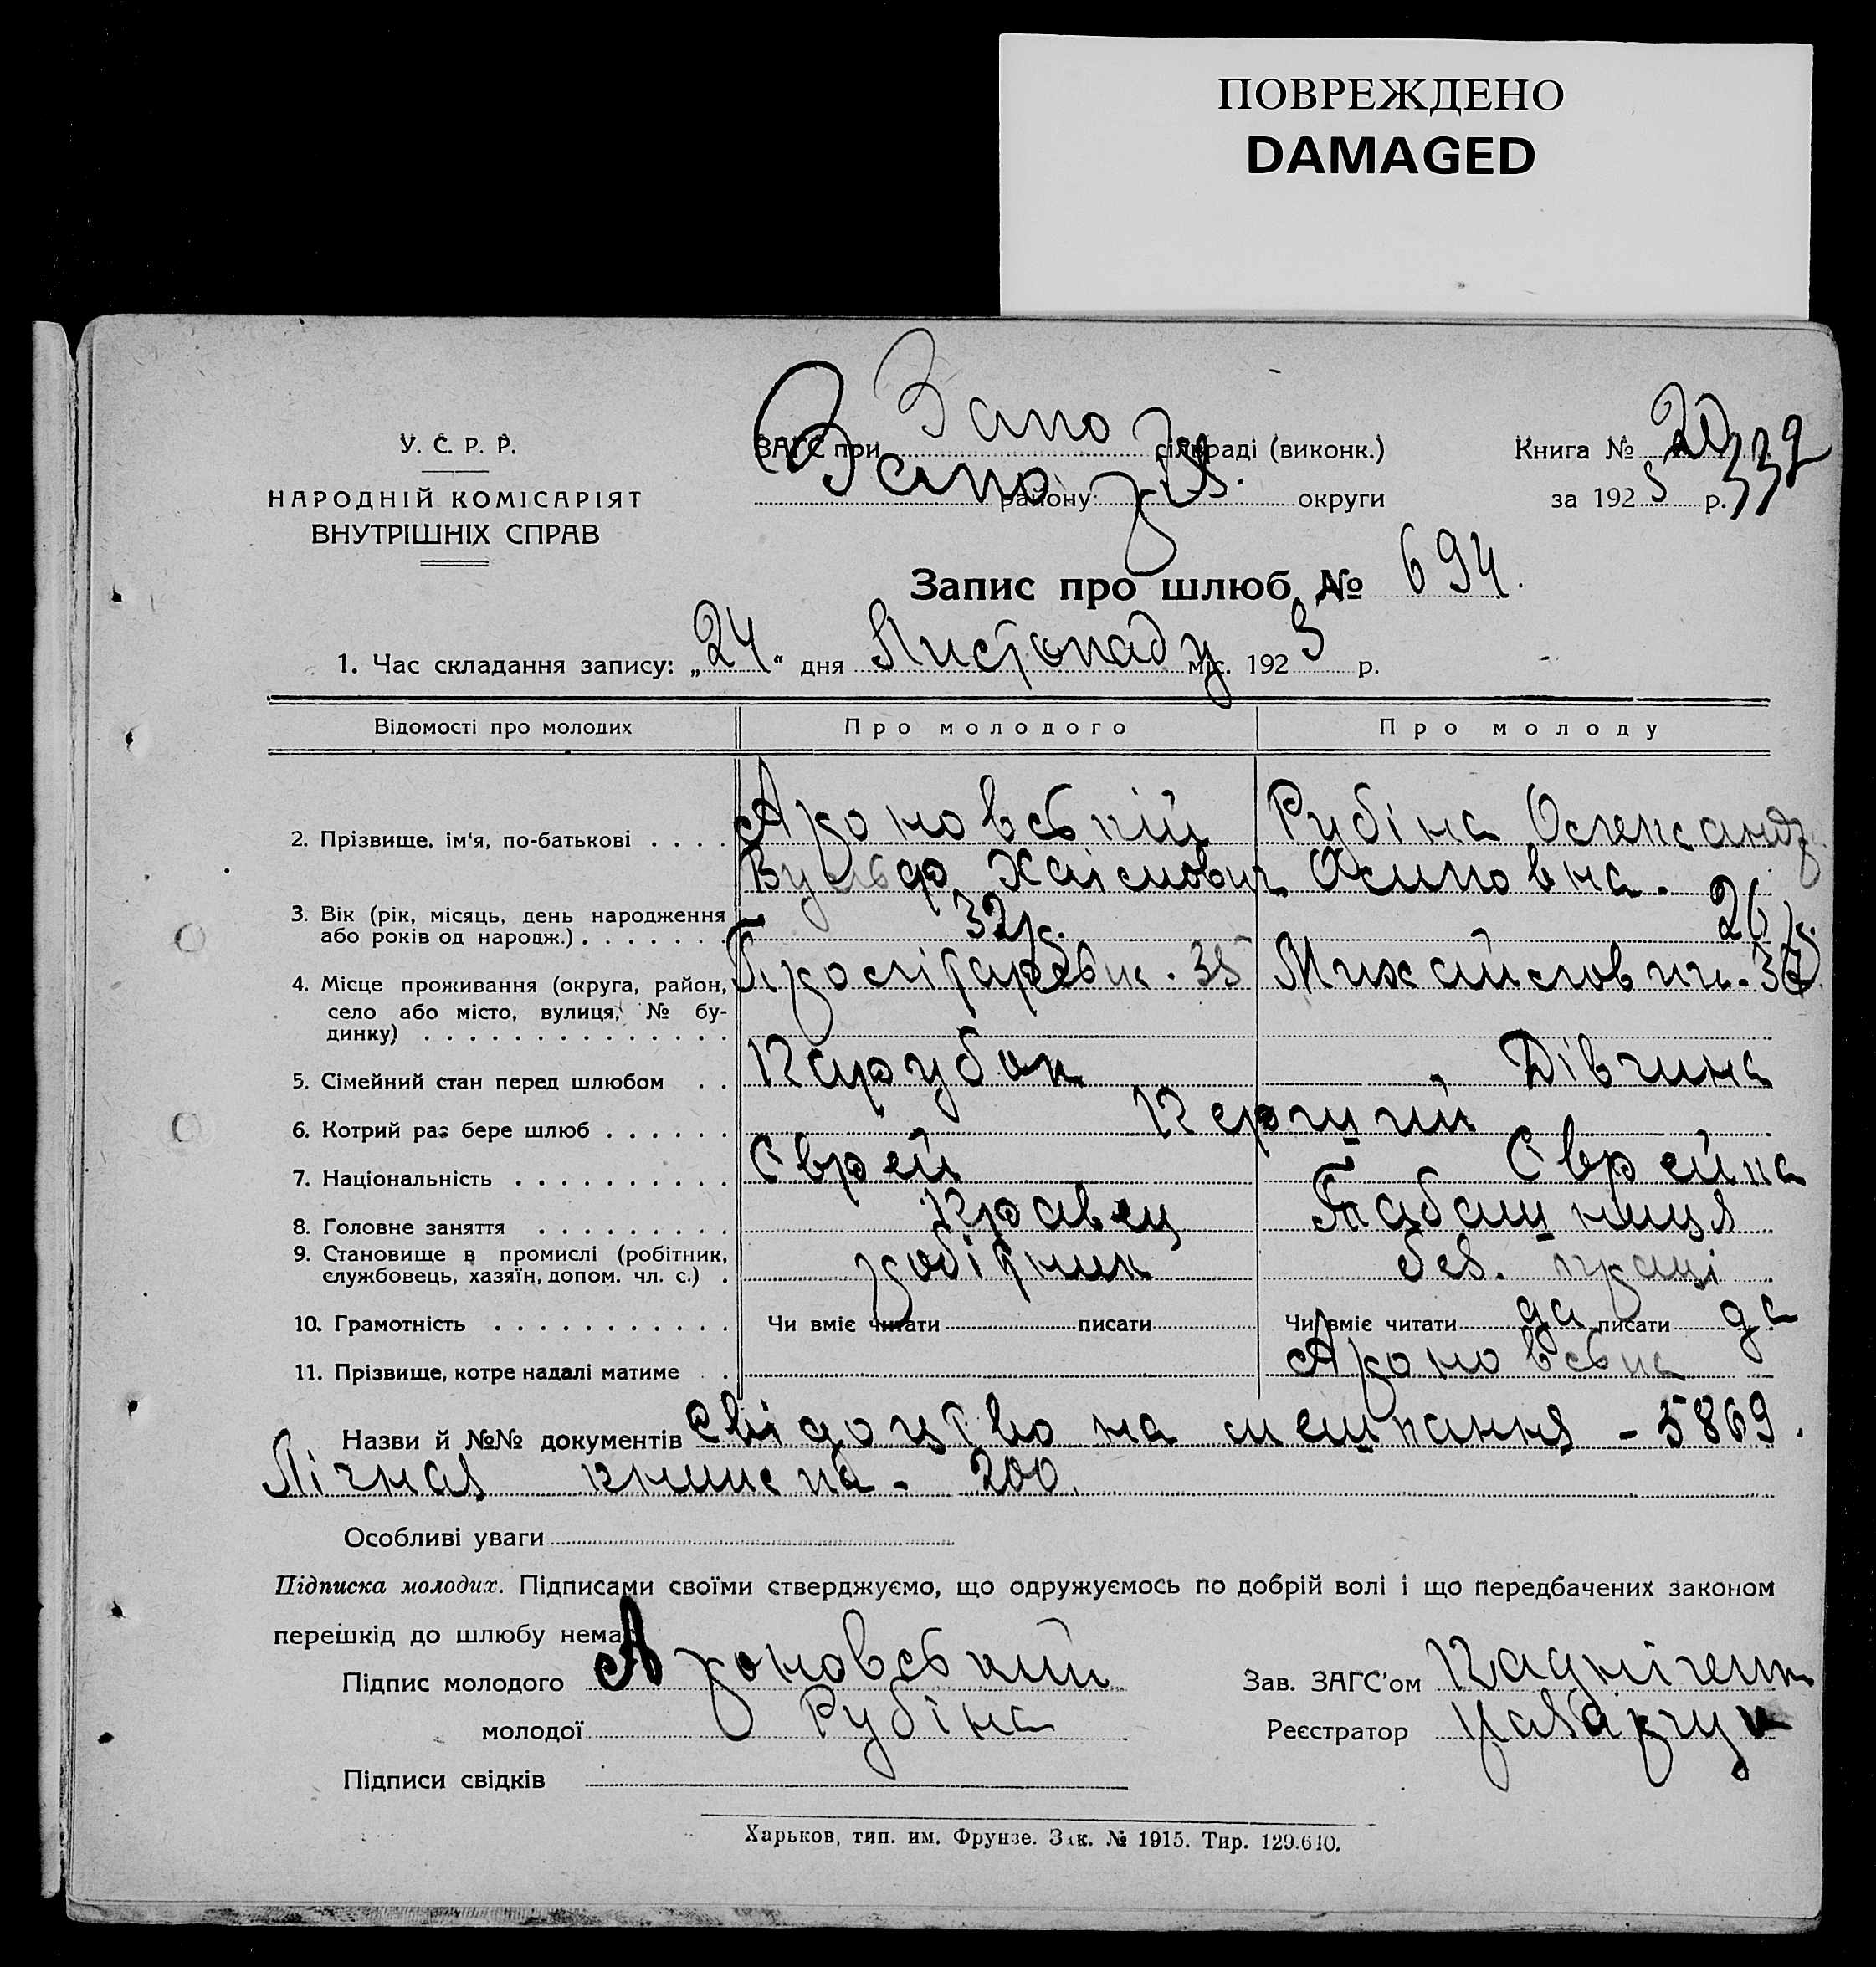 ПОВРЕЖДЕНО
DAMAGED
У. С. Р. Р.
НАРОДНІЙ КОМІСАРІЯТ
ВНУТРІШНІХ СПРАВ
ЗАГС при Запор сільраді (виконк.)
Запор району округи
Книга № 20
332
за 1925 р.
Запис про шлюб № 694.
1. Час складання запису: „24“ дня Листопаду міс. 1925 р.
Відомості про молодих Про молодого Про молоду
2. Прізвище, ім‘я, по-батькові Ароновський Рубіна Олександ.
Вульф Хаімович Осиповна.
3. Вік (рік, місяць, день народження або років од народж.) 32 р. 26 р.
4. Місце проживання (округа, район, село або місто, вулиця, № будинку) 35 Михайлович. 37
5. Сімейний стан перед шлюбом Парубок Дівчина
6. Котрий раз бере шлюб Перший
7. Національність Єврей Єврейка
8. Головне заняття Кравец Табашниця
9. Становище в промислі (робітник, службовець, хазяїн, допом. чл. с.) робітник без. праці
10. Грамотність Чи вміє читати писати Чи вміє читати да писати да
11. Прізвище, котре надалі матиме Ароновська
Назви й №№ документів Свідоцтво на мешкання - 5869.
Лічная книжка - 200.
Особливі уваги
Підписка молодих. Підписами своїми стверджуємо, що одружуємось по добрій волі і що передбачених законом
перешкід до шлюбу немає
Підпис молодого Ароновський Зав. ЗАГС’ом
молодої Рубіна Реєстратор
Підписи свідків
Харьков, тип. им. Фрунзе. Зак. № 1915. Тир. 129.640.